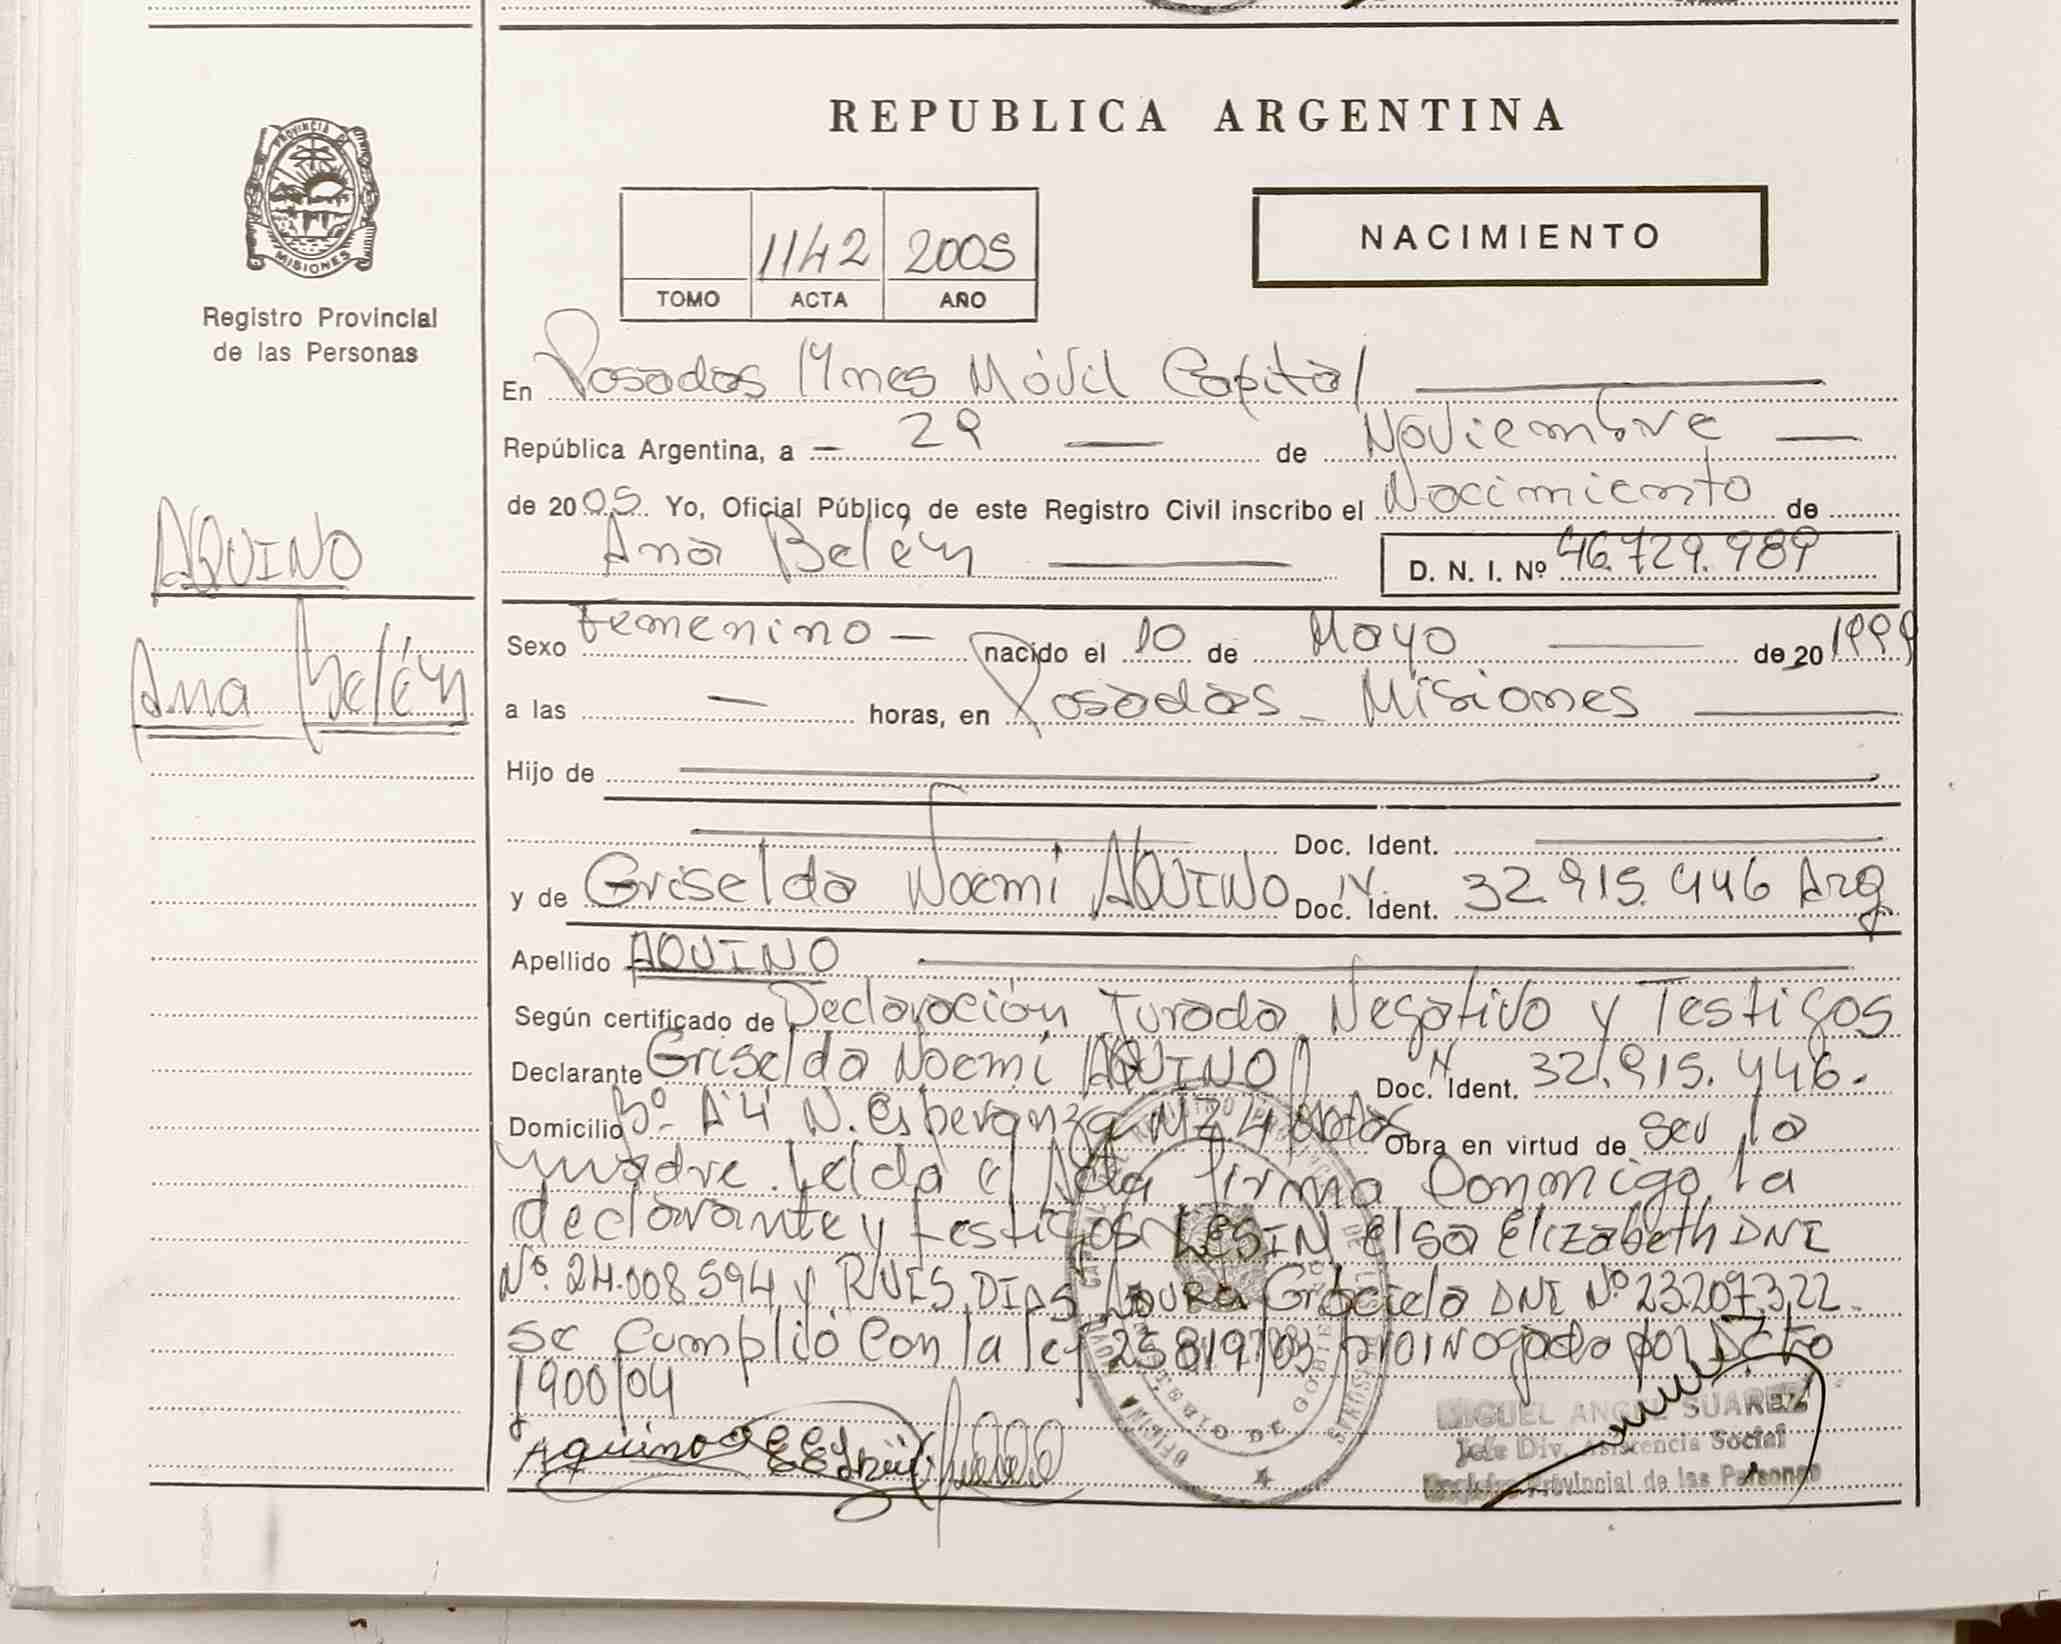 REPUBLICA ARGENTINA
PROVINCIA DE
MISIONES
Registro Provincial
de las Personas
1142 2005
TOMO ACTA AÑO
NACIMIENTO
AQUINO
Ana Belén
En Posadas Mnes Móvil Capital
República Argentina, a 29 de Noviembre
de 2005. Yo, Oficial Público de este Registro Civil inscribo el Nacimiento de
Ana Belén D. N. I. Nº 46.729.989
Sexo femenino nacido el 10 de Mayo de 20 1999
a las — horas, en Posadas - Misiones
Hijo de
Doc. Ident.
y de Griselda Noemi AQUINO Doc. Ident. N. 32.915.446 Arg
Apellido AQUINO
Según certificado de Declaración Jurada Negativo y Testigos
Declarante Griselda Noemi AQUINO Doc. Ident. N. 32.915.446.
Domicilio Bº. A'4' N. Esperanza MZ 4 Obra en virtud de ser la
madre. Leída el Acta firma Conmigo la
declarante y testigos LESIN Elsa Elizabeth DNI
Nº. 24.008.594 y RUIS DIAS Laura Graciela DNI Nº 23.207.322.
se cumplió con la ley 25819/03 prorrogada por Dcto
1900/04
Aquino
MIGUEL ANGEL SUAREZ
Jefe Div. Asistencia Social
Registro Provincial de las Personas